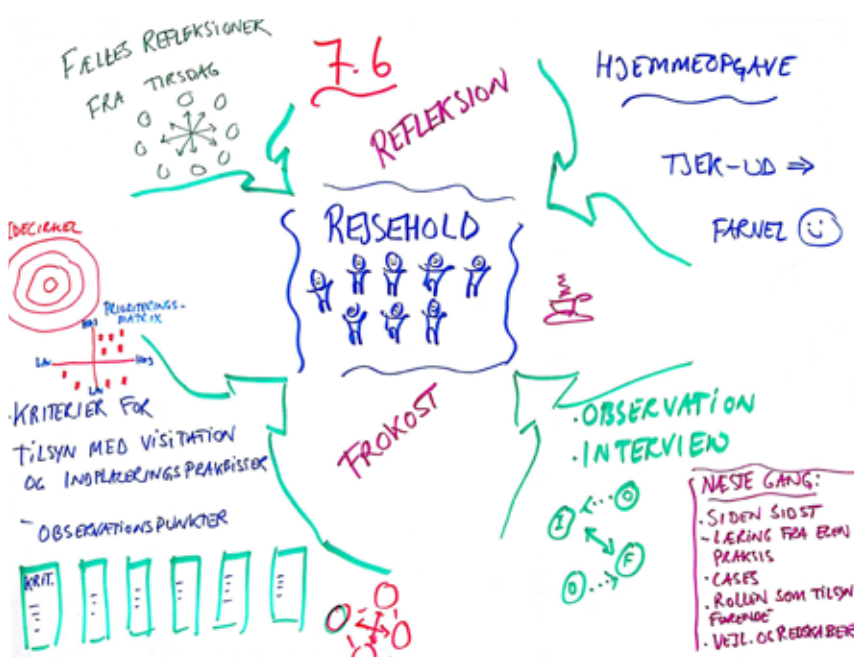 FÆLLES REFLEKSIONER
FRA TIRSDAG
7.6
REFLEKSION
HJEMMEOPGAVE
TJEK-UD ⇒
FARVEL
IDECIRKEL
PRIORITERINGS-
MATRIX
HØJ
LAV
HØJ
LAV
REJSEHOLD
· KRITERIER FOR
TILSYN MED VISITATION
OG INDPLACERINGSPRAKSISSER
- OBSERVATIONSPUNKTER
KRIT.
FROKOST
· OBSERVATION
· INTERVIEW
I
O
F
O
NÆSTE GANG:
· SIDEN SIDST
- LÆRING FRA EGEN
PRAKSIS
· CASES
· ROLLEN SOM TILSYN
FØRENDE
· VEJL. OG REDSKABER